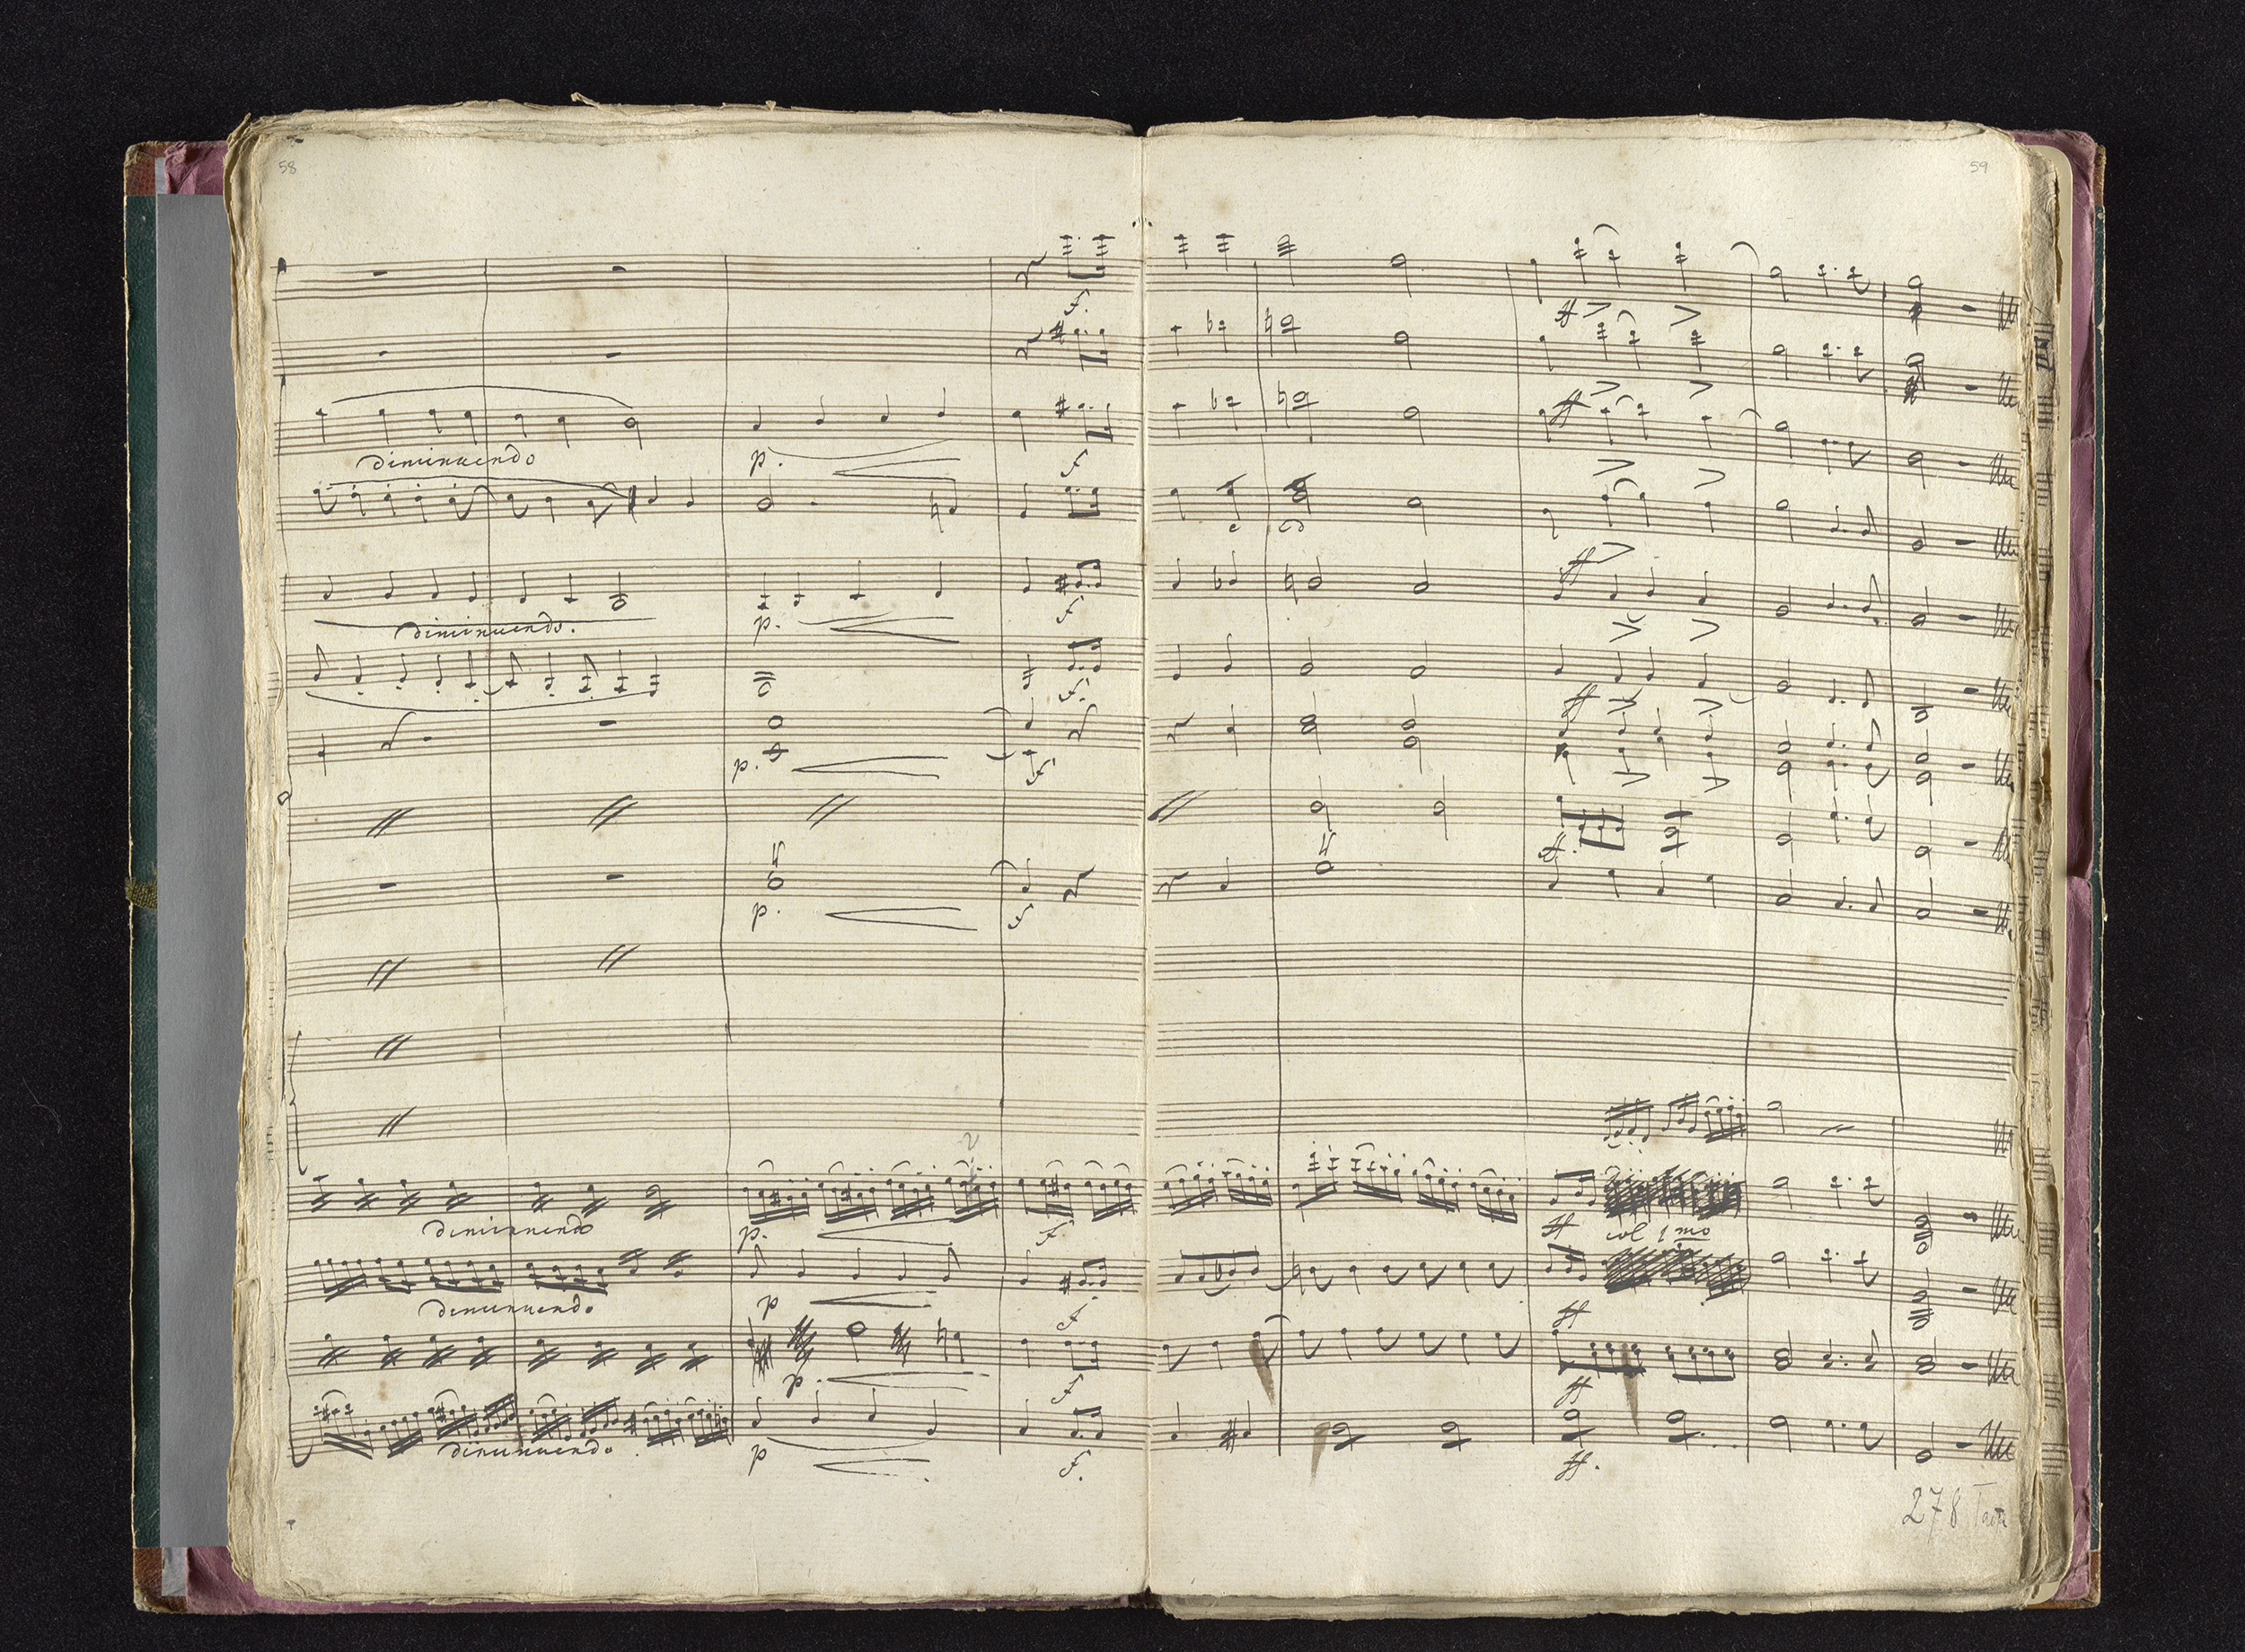 58
59
f.
ff
diminuendo
p.
f
ff
diminuendo.
p.
f
ff
f.
ff
p.
f
ff.
p.
f
diminuendo
p.
f.
ff
col 1mo
diminuendo
p
f
ff
p.
f
ff
diminuendo
p
f.
ff.
278 Tacte